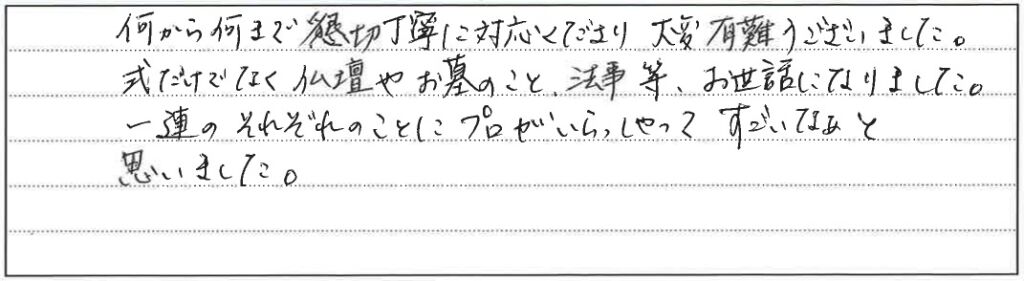 何から何まで懇切丁寧に対応くださり 大変有難うございました。
式だけでなく 仏壇や お墓のこと、法事 等、お世話になりました。
一連の それぞれのことに プロがいらっしゃって すごいなぁ と
思いました。